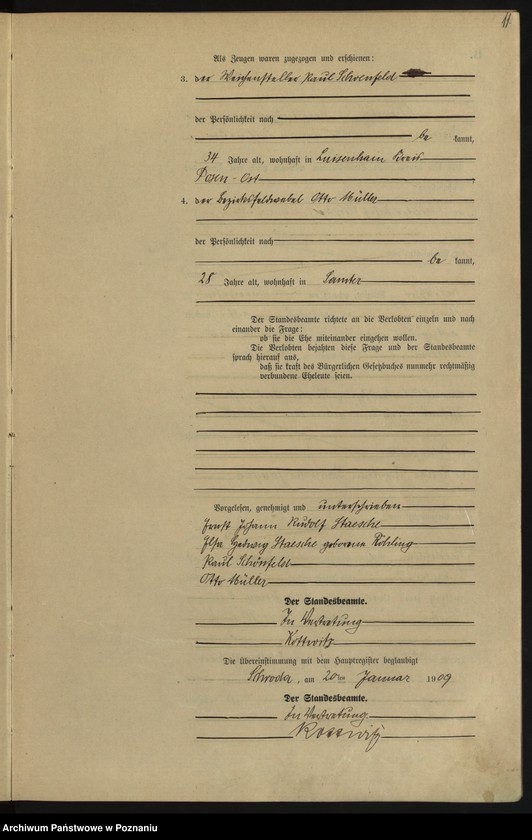 11.
Als Zeugen waren zugezogen und erschienen:
3. der Weichensteller Paul Schoenfeld
der Persönlichkeit nach
be kannt,
34 Jahre alt, wohnhaft in Luisenhain Kreis
Posen-Ost
4. der Bezirksfeldwebel Otto Müller
der Persönlichkeit nach
be kannt,
28 Jahre alt, wohnhaft in Samter
Der Standesbeamte richtete an die Verlobten einzeln und nach
einander die Frage:
ob sie die Ehe miteinander eingehen wollen.
Die Verlobten bejahten diese Frage und der Standesbeamte
sprach hierauf aus,
daß sie kraft des Bürgerlichen Gesetzbuches nunmehr rechtmäßig
verbundene Eheleute seien.
Vorgelesen, genehmigt und unterschrieben
Ernst Johann Rudolf Staesche
Elsa Hedwig Staesche geborene Röhling
Paul Schönfeld
Otto Müller
Der Standesbeamte.
In Vertretung
Kottwitz
Die Übereinstimmung mit dem Hauptregister beglaubigt
Schroda, am 20ten Januar 1909
Der Standesbeamte.
In Vertretung
Kottwitz
Archiwum Państwowe w Poznaniu